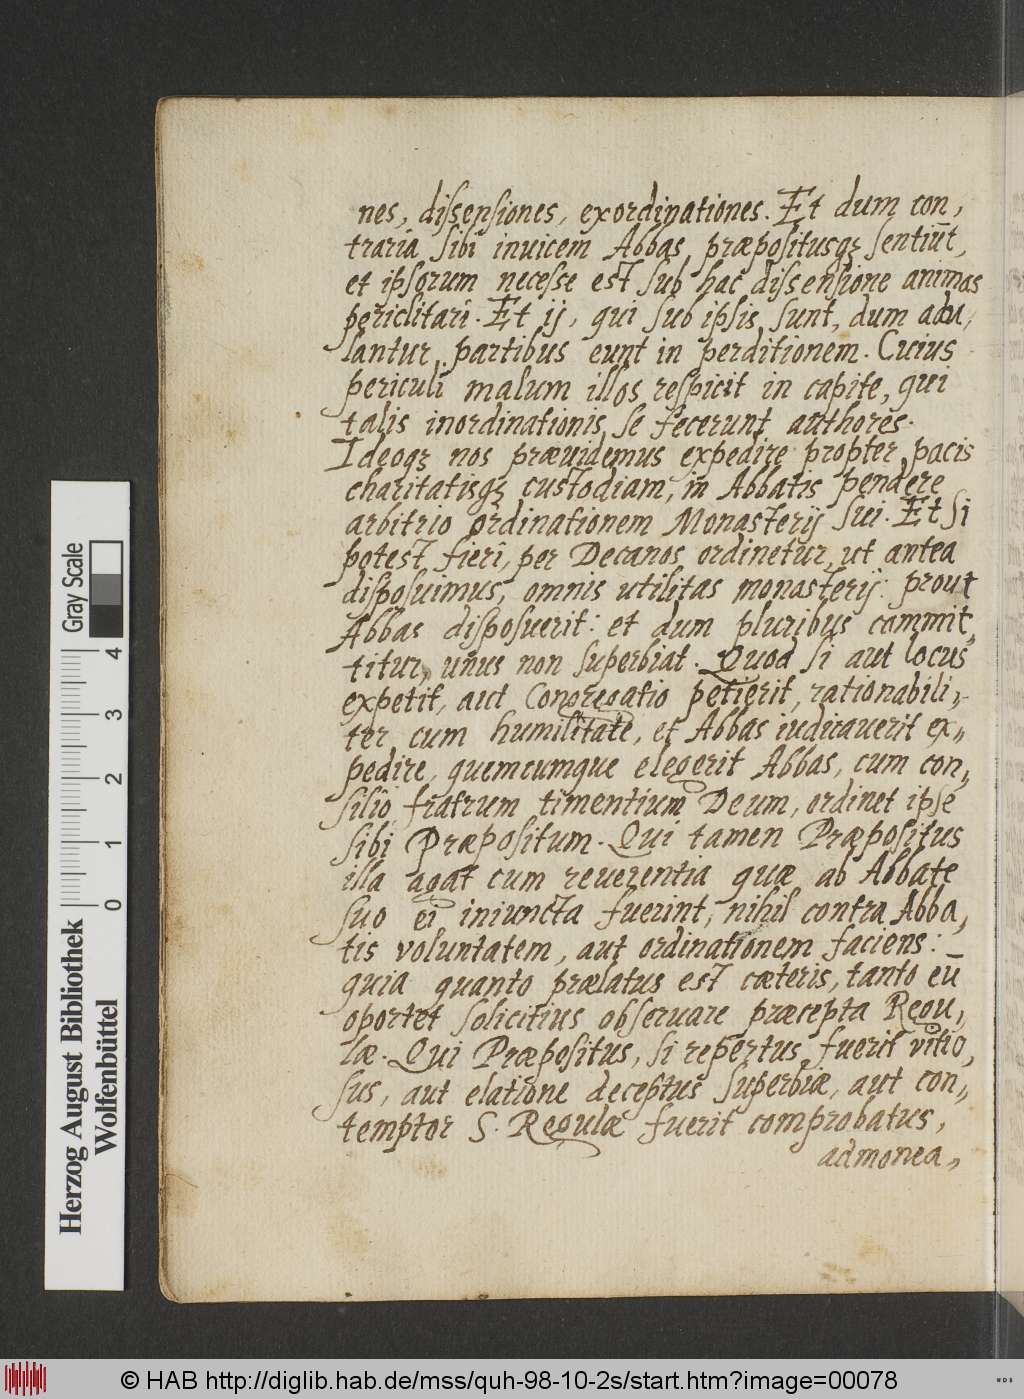 nes, dissensiones, exordinationes. Et dum con,
traria sibi inuicem Abbas, præpositusqꝫ sentiūt,
et ipsorum necesse est sub hac dissensione animas
periclitari. Et ij, qui sub ipsis sunt, dum adu,
lantur partibus eunt in perditionem. Cuius
periculi malum illos respicit in capite, qui
talis inordinationis se fecerunt authores.
Ideoqꝫ nos præuidemus expedire propter pacis
charitatisqꝫ custodiam, in Abbatis pendere
arbitrio ordinationem Monasterij sui. Et si
potest fieri, per Decanos ordinetur, ut antea
disposuimus, omnis utilitas monasterij: prout
Abbas disposuerit: et dum pluribus commit,
titur, unus non superbiat. Quod si aut locus
expetit, aut Congregatio petierit, rationabili,
ter cum humilitate, et Abbas iudicauerit ex,,
pedire, quemcumque elegerit Abbas, cum con,,
silio fratrum timentium Deum, ordinet ipse
sibi Præpositum. Qui tamen Præpositus
illa agat cum reuerentia quæ ab Abbate
suo ei iniuncta fuerint, nihil contra Abba,
tis voluntatem, aut ordinationem faciens:
quia quanto prælatus est cæteris, tanto eū
oportet solicitius obseruare præcepta Regu,
læ. Qui Præpositus, si repertus fuerit vitio,
sus, aut elatione deceptus superbiæ, aut con,,
temptor S. Regulæ fuerit comprobatus,
admonea,,
Gray Scale
0 1 2 3 4
Herzog August Bibliothek
Wolfenbüttel
© HAB http://diglib.hab.de/mss/quh-98-10-2s/start.htm?image=00078